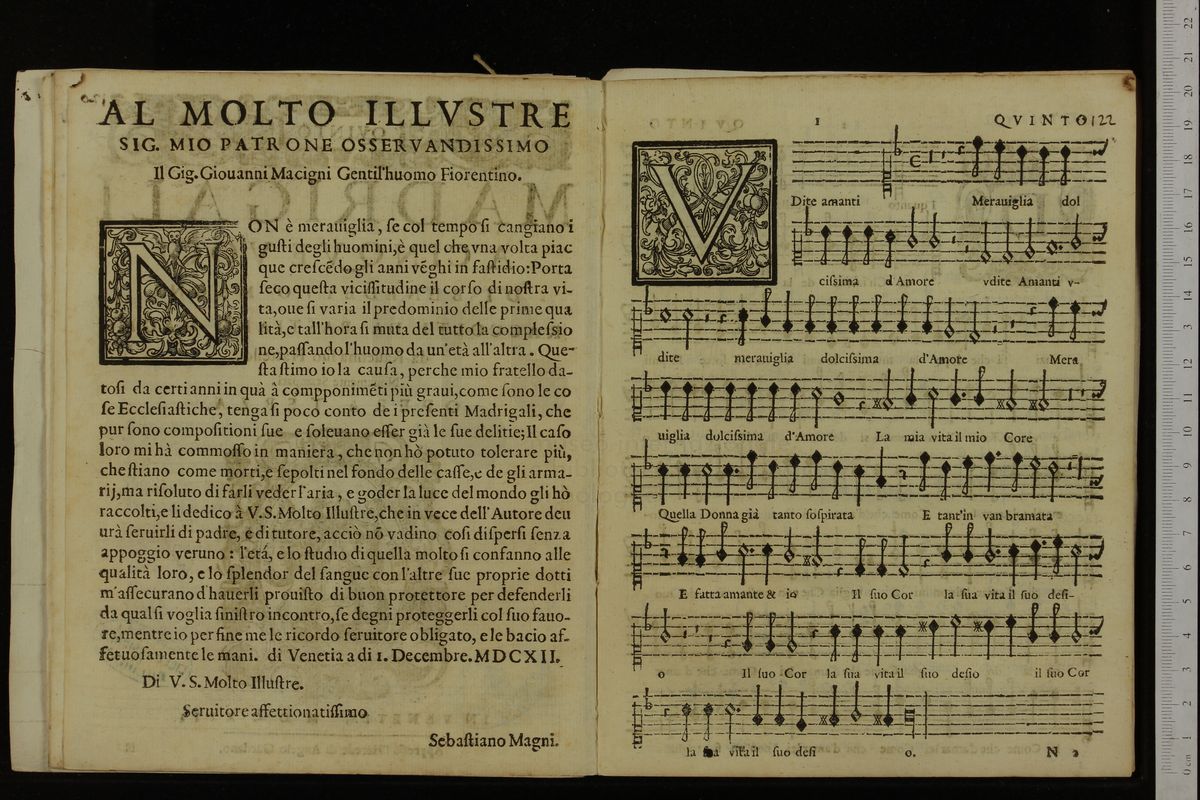 AL MOLTO ILLVSTRE
SIG. MIO PATRONE OSSERVANDISSIMO
Il Gig. Giouanni Macigni Gentil'huomo Fiorentino.
NON è merauiglia, se col tempo si cangiano i
gusti degli huomini, è quel che vna volta piac
que crescẽdo gli anni vẽghi in fastidio: Porta
seco questa vicissitudine il corso di nostra vi-
ta, oue si varia il predominio delle prime qua
lità, e tall'hora si muta del tutto la complessio
ne, passando l'huomo da un'età all'altra. Que-
sta stimo io la causa, perche mio fratello da-
tosi da certi anni in quà â compponimẽti più graui, come sono le co
se Ecclesiastiche, tenga si poco conto de i presenti Madrigali, che
pur sono compositioni sue e soleuano esser già le sue delitie; Il caso
loro mi hà commosso in maniera, che non hò potuto tolerare più,
che stiano come morti, e sepolti nel fondo delle casse, e de gli arma-
rij, ma risoluto di farli veder l'aria, e goder la luce del mondo gli hò
raccolti, e li dedico â V. S. Molto Illustre, che in vece dell'Autore deu
urà seruirli di padre, e di tutore, acciò nõ vadino cosi dispersi senza
appoggio veruno: l'etá, e lo studio di quella molto si confanno alle
qualità loro, e lo splendor del sangue con l'altre sue proprie dotti
m'assecurano d'hauerli prouisto di buon protettore per defenderli
da qual si voglia sinistro incontro, se degni proteggerli col suo fauo-
re, mentre io per fine me le ricordo seruitore obligato, e le bacio af-
fetuosamente le mani. di Venetia a di 1. Decembre. MDCXII.
Di V. S. Molto Illustre.
Seruitore affettionatissimo
Sebastiano Magni.
1 QVINTO 122
VDite amanti Merauiglia dol
cissima d'Amore vdite Amanti v-
dite merauiglia dolcissima d'Amore Mera
uiglia dolcissima d'Amore La mia vita il mio Core
Quella Donna già tanto sospirata E tant'in van bramata
E fatta amante & io Il suo Cor la sua vita il suo desi-
o Il suo Cor la sua vita il suo desio il suo Cor
la sua vita il suo desi o. N 2